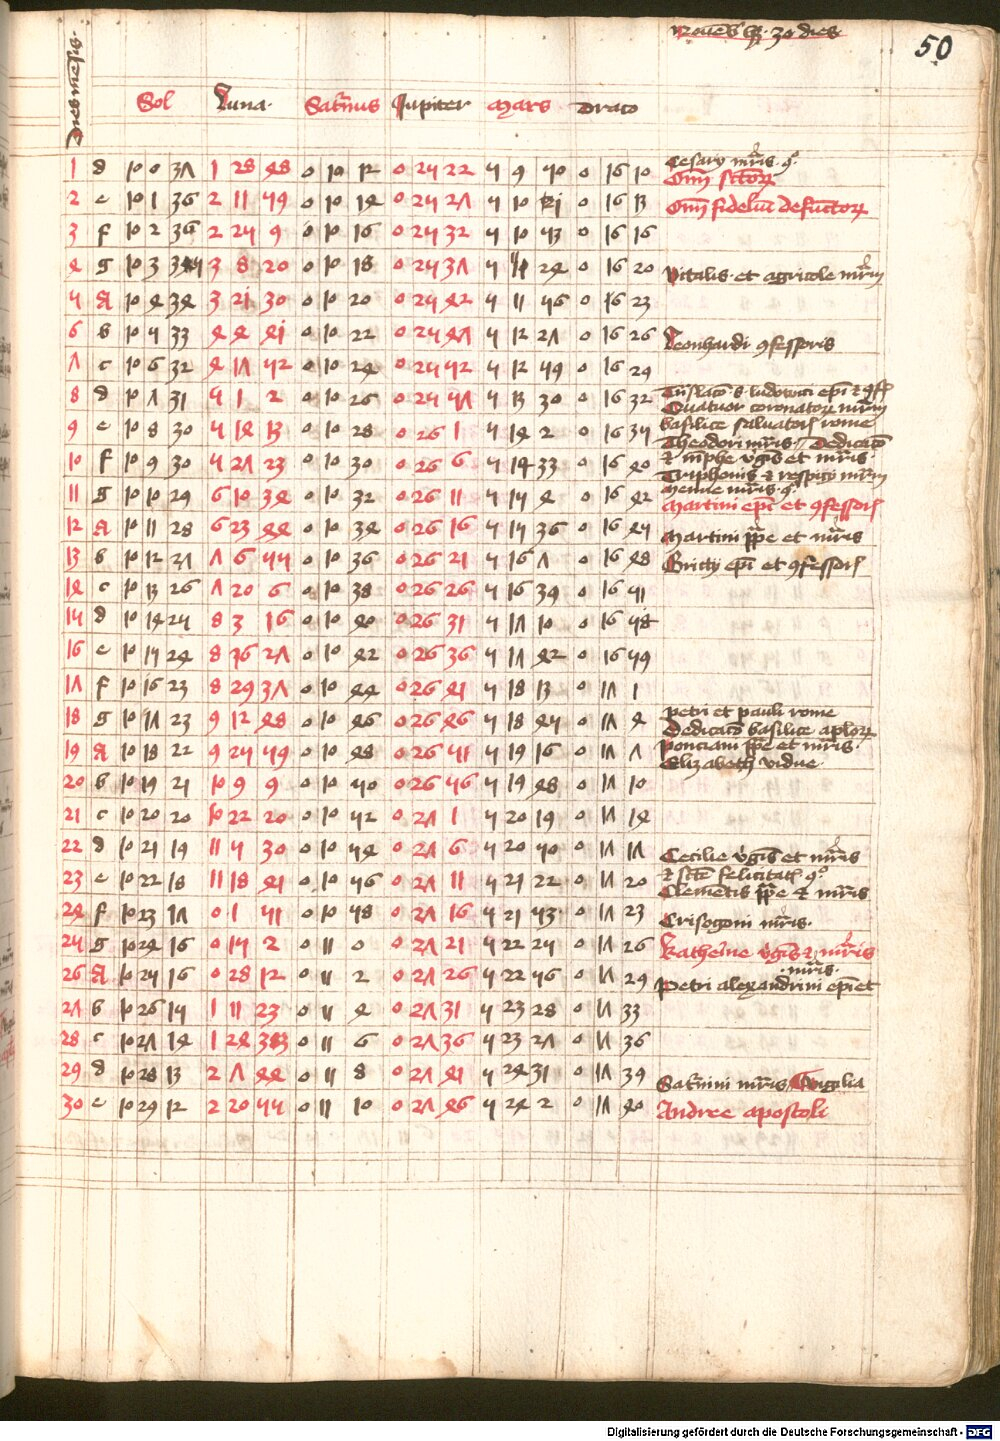 Nouēbꝫ · 30 dies
50
Dies mēsis · Sol Luna · Satⁿnus Jupiter Mars Draco
1 d 10 0 37 1 28 48 0 10 12 0 25 22 5 9 50 0 16 10 Cesarij mr̄is
Om̄ sctōꝝ
2 e 10 1 36 2 11 59 0 10 14 0 25 27 5 10 0 16 13 Om̄ fideliū defūctoꝝ
3 f 10 2 36 2 25 9 0 10 16 0 25 32 5 10 53 0 16 16
4 g 10 3 3 8 20 0 10 18 0 25 37 5 24 0 16 20 Vitalis · et agricole mr̄m
5 A 10 4 34 3 21 30 0 10 20 0 25 42 5 11 56 0 16 23
6 b 10 5 33 4 4 41 0 10 22 0 25 47 5 12 27 0 16 26 Leonhardi ꝯfessoris
7 c 10 6 32 4 17 52 0 10 24 0 25 52 5 12 59 0 16 29
8 d 10 7 31 5 1 2 0 10 26 0 25 57 5 13 30 0 16 32 ludowici ep̄i
Quatuor coronatoꝝ mr̄m
9 e 10 8 30 5 14 13 0 10 28 0 26 1 5 14 2 0 16 35 basilice saluatoris rome
Theodori mr̄is · Dedicacō
10 f 10 9 30 5 27 23 0 10 30 0 26 6 5 14 33 0 16 40 et nī̄phe v̄gīs et mr̄is ·
Triphonis et respicij mr̄m
11 g 10 10 29 6 10 34 0 10 32 0 26 11 5 15 4 0 16 42 menne mr̄is ·
Martini ep̄i et ꝯfessoris
12 A 10 11 28 6 23 44 0 10 34 0 26 16 5 15 36 0 16 45 Martini pp̄e et mr̄is
13 b 10 12 27 7 6 55 0 10 36 0 26 21 5 16 7 0 16 48 Briccij ep̄i et ꝯfessoris
14 c 10 13 26 7 20 6 0 10 38 0 26 26 5 16 39 0 16 51
15 d 10 14 25 8 3 16 0 10 40 0 26 31 5 17 10 0 16 58
16 e 10 15 24 8 16 27 0 10 42 0 26 36 5 17 42 0 16 59
17 f 10 16 23 8 29 37 0 10 44 0 26 41 5 18 13 0 17 1
18 g 10 17 23 9 12 48 0 10 46 0 26 46 5 18 45 0 17 4 petri et pauli rome
Dedicacō basilice apl̄oꝝ
19 A 10 18 22 9 25 59 0 10 48 0 26 51 5 19 16 0 17 7 ponciani pp̄e et mr̄is ·
Elizabeth vidue
20 b 10 19 21 10 9 9 0 10 50 0 26 56 5 19 48 0 17 10
21 c 10 20 20 10 22 20 0 10 52 0 27 1 5 20 19 0 17 14
22 d 10 21 19 11 5 30 0 10 54 0 27 6 5 20 50 0 17 17 Cecilie v̄gīs et mr̄is
23 e 10 22 18 11 18 41 0 10 56 0 27 11 5 21 22 0 17 20 et sctē felicitatis
Clementis pp̄e et mr̄is
24 f 10 23 17 0 1 51 0 10 58 0 27 16 5 21 53 0 17 23 Crisogoni mr̄is ·
25 g 10 24 16 0 15 2 0 11 0 0 27 21 5 22 25 0 17 26 Katherine v̄gīs et mr̄is
26 A 10 25 16 0 28 12 0 11 2 0 27 26 5 22 56 0 17 29 · mr̄is ·
Petri alexandrini ep̄i et
27 b 10 26 15 1 11 23 0 11 4 0 27 31 5 23 28 0 17 33
28 c 10 27 14 1 24 33 0 11 6 0 27 36 5 23 27 0 17 36
29 d 10 28 13 2 7 44 0 11 8 0 27 41 5 24 31 0 17 39 Saturnini mr̄is Vigilia
30 e 10 29 12 2 20 55 0 11 10 0 27 46 5 24 2 0 17 40 Andree apostoli
Digitalisierung gefördert durch die Deutsche Forschungsgemeinschaft - DFG